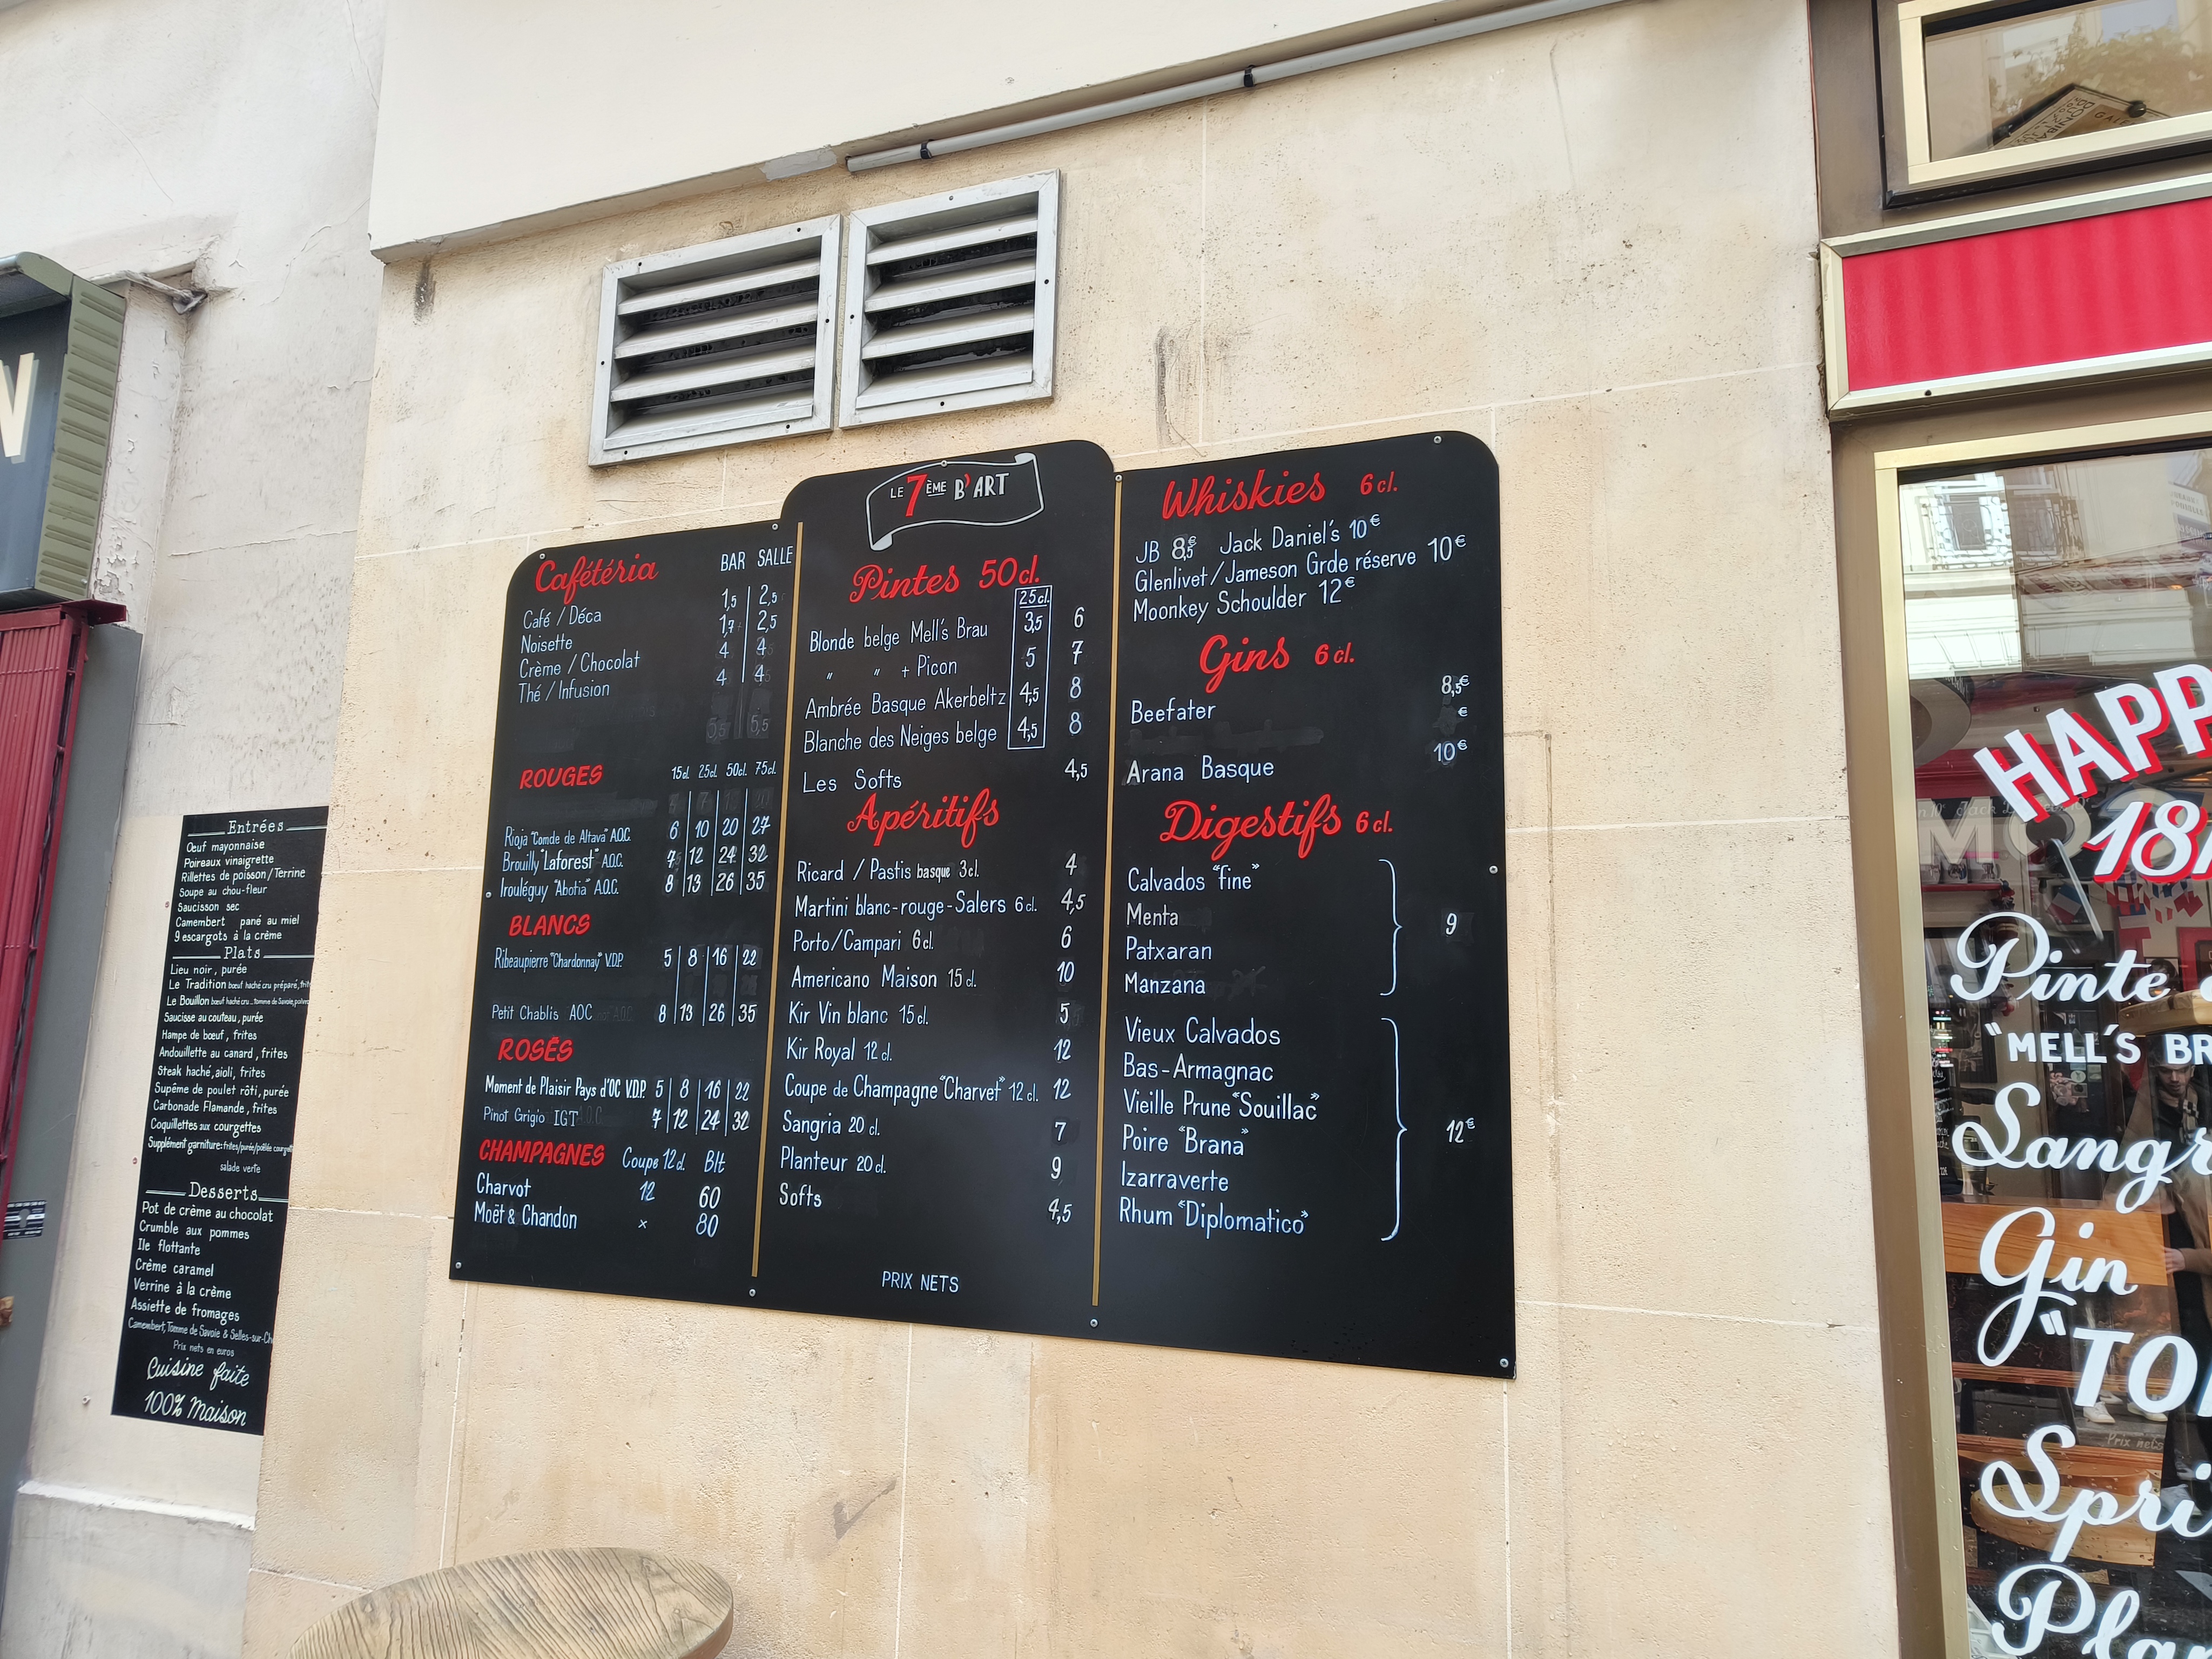 N
Entrées
Œuf mayonnaise
Poireaux vinaigrette
Rillettes de poisson/Terrine
Soupe au chou-fleur
Saucisson sec
Camembert pané au miel
9 escargots à la crème
Plats
Lieu noir, purée
Le Tradition bœuf haché cru préparé, frit
Le Bouillon bœuf haché cru Tomme de Savoie
Saucisse au couteau, purée
Hampe de bœuf, frites
Andouillette au canard, frites
Steak haché, aioli, frites
Supême de poulet rôti, purée
Carbonade Flamande, frites
Coquillettes aux courgettes
Supplément garniture: frites/purée/poêlée
salade verte
Desserts
Pot de crème au chocolat
Crumble aux pommes
Ile flottante
Crème caramel
Verrine à la crème
Assiette de fromages
Camembert, Tomme de Savoie & Selles-sur-Ch
Prix nets en euros
Cuisine faite
100% Maison
Cafétéria BAR SALLE
Café / Déca 1,5 2,5
Noisette 1,7 2,5
Crème / Chocolat 4 4
Thé / Infusion 4 4
ROUGES 15cl. 25cl. 50cl. 75cl.
Rioja "Comde de Altava" A.O.C. 6 10 20 27
Brouilly "Laforest" A.O.C. 7 12 24 32
Irouléguy "Abotia" A.O.C. 8 13 26 35
BLANCS
Ribeaupierre "Chardonnay" V.D.P. 5 8 16 22
Petit Chablis AOC 8 13 26 35
ROSÉS
Moment de Plaisir Pays d'OC V.D.P. 5 8 16 22
Pinot Grigio IGT 7 12 24 32
CHAMPAGNES Coupe 12cl. Blt
Charvot 12 60
Moët & Chandon x 80
LE 7ÈME B'ART
Pintes 50cl.
25cl.
Blonde belge Mell's Brau 3,5 6
" " + Picon 5 7
Ambrée Basque Akerbeltz 4,5 8
Blanche des Neiges belge 4,5 8
Les Softs 4,5
Apéritifs
Ricard / Pastis basque 3cl. 4
Martini blanc-rouge-Salers 6cl. 4,5
Porto/Campari 6cl. 6
Americano Maison 15cl. 10
Kir Vin blanc 15cl. 5
Kir Royal 12cl. 12
Coupe de Champagne "Charvet" 12cl. 12
Sangria 20cl. 7
Planteur 20cl. 9
Softs 4,5
PRIX NETS
Whiskies 6cl.
JB 8,5€ Jack Daniel's 10€
Glenlivet/Jameson Grde réserve 10€
Moonkey Schoulder 12€
Gins 6cl.
Beefater 8,5€
€
Arana Basque 10€
Digestifs 6cl.
Calvados "fine"
Menta
Patxaran
Manzana
9
Vieux Calvados
Bas-Armagnac
Vieille Prune "Souillac"
Poire "Brana"
Izarraverte
Rhum "Diplomatico"
12€
HAPP
18
Pinte
"MELL'S BR
Sangr
Gin
"TO
Spri
Pla
Prix nets